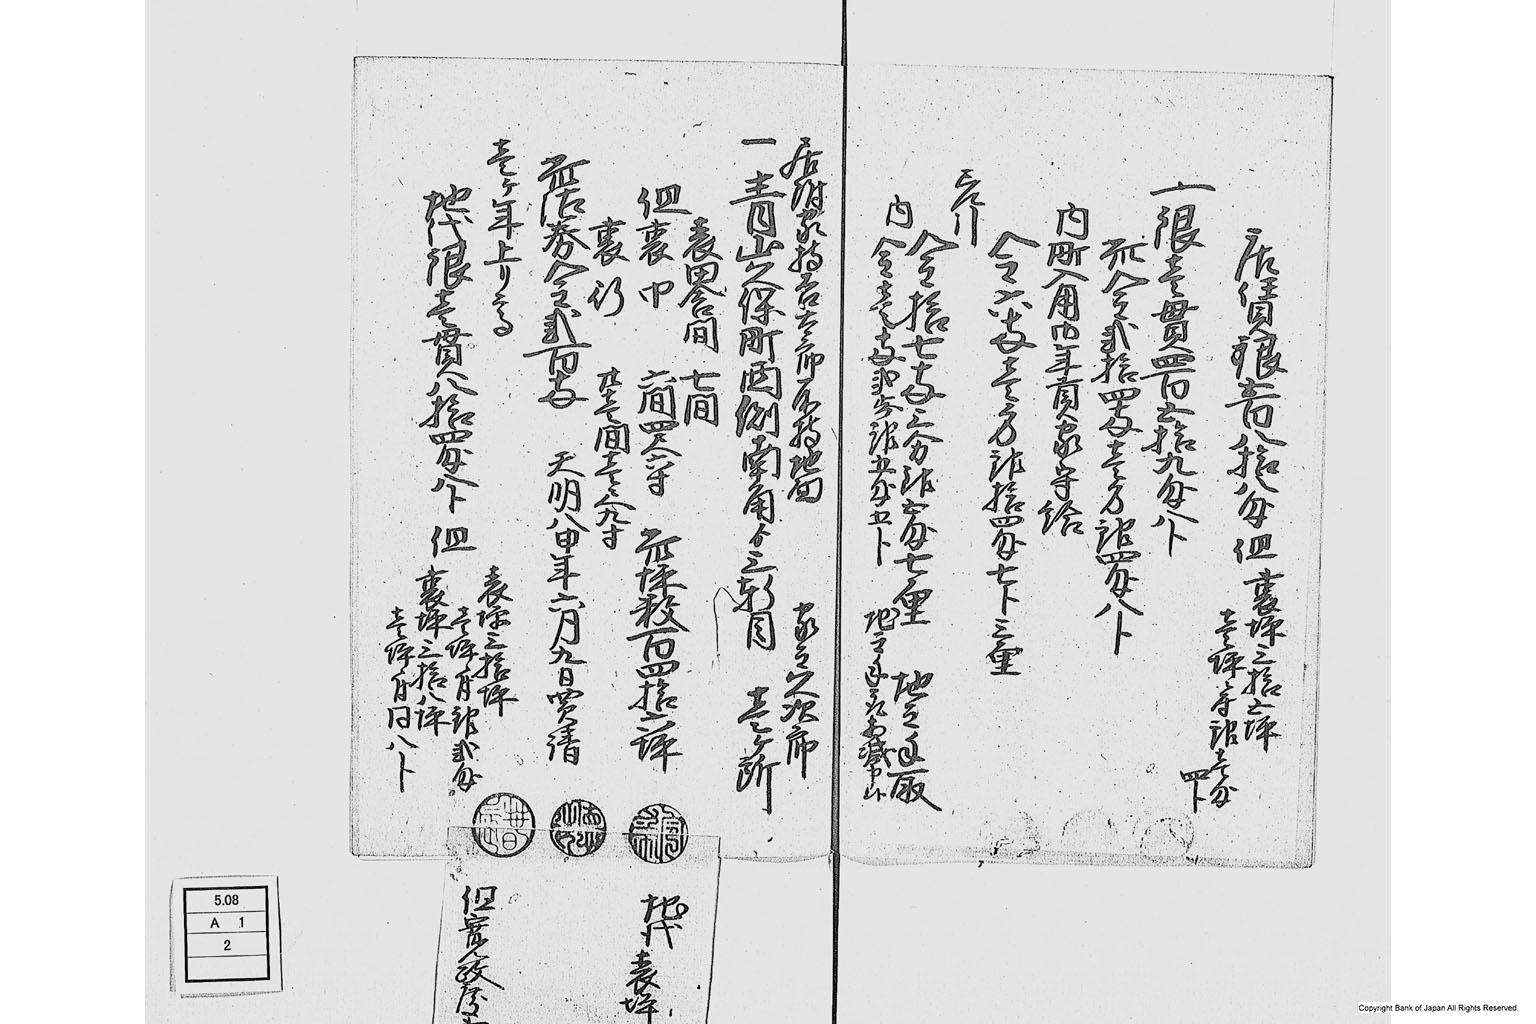 店賃銀壱百八拾八匁 但 裏坪三拾五坪
壱坪ニ付銀壱匁
四分
一 銀壱貫四百五拾九匁八分
此金弐拾四両壱分銀四匁八分
内町入用幷年貢家守給
金六両壱分銀拾四匁七分三厘
差引
金拾七両三分銀五匁七厘 地主手取
内 金壱両弐分銀五匁五分
居附家持 地面
家主久次郎
一 青山久保町西側南角ゟ三軒目 壱ヶ所
表田舎間 七間
但 裏巾 六間四尺六寸 此坪数百四拾六坪
裏行 廿壱間壱尺九寸
此沽券金弐百両 天明八申年六月九日買請
壱ヶ年上り高
地代銀壱貫八拾四匁八分 但
表坪三拾坪
壱坪ニ付銀弐匁
裏坪三拾八坪
壱坪ニ付同八分
地代 表坪
但寛政
5.08
A 1
2
Copyright Bank of Japan All Rights Reserved.